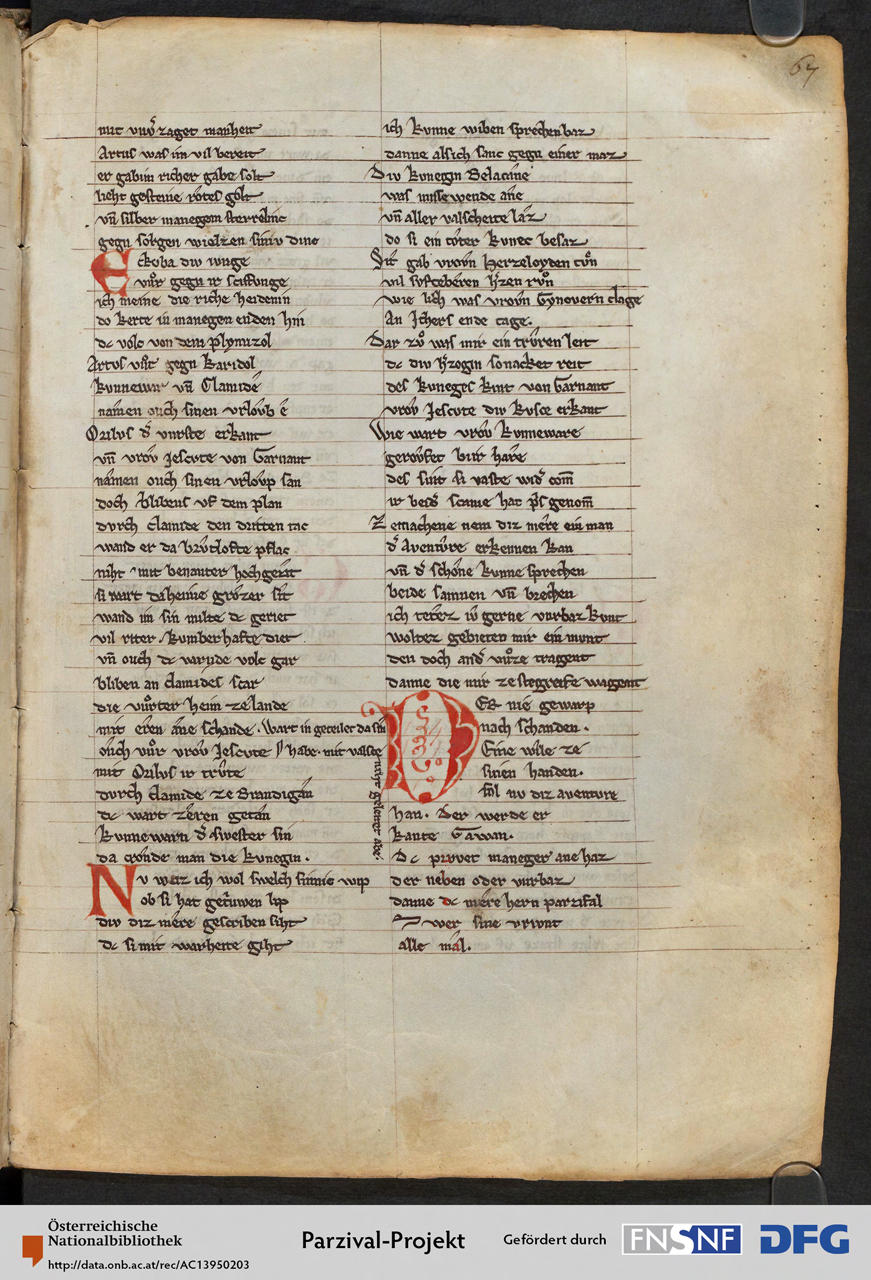 67
mit vnv̂zaget manheit
Artus was im vil bereit
er gab im richer gabe solt
lieht gesteine rotes golt
vn̄ silber manegem sterrelinc
gegn sorgen wielzen siniv dinc
Eckuba div iunge
vuͦr gegn ir sciffunge
ich meine die riche heidenin
do kerte in manegen enden hin
dc volc von dem plymizol
Artus vuͦr gegn karidol
kunnewar vn̄ Clamide
namen ouch sinen vrloub e
Orilus d̂ vurste erkant
vn̄ vrov Jescute von Garnant
namen ouch sinen vrloup san
doch blibens vf dem plan
durch clamide den dritten tac
wand er da brutlofte pflac
niht mit benanter hochgezit
si wart da heime grozer sit
wand im sin milte dc geriet
vil riter kumberhafte diet
vn̄ ouch dc varnde volc gar
bliben an clamides scar
die vuͦrter heim ze lande
mit eren ane schande. wart in geteilet da sin
ouch vuͦr vrov Jescute // habe. mit valsce
niht geleret abe.
mit Orilus ir trute
durch clamide ze Brandigan
dc wart zeren getan
kunnewarn d̂ swester sin
da cronde man die kunegin.
Nu weiz ich wol swelch sinnic wip
ob si hat getruwen lip
div diz mere gescriben siht
dc si mit warheite giht
ich kunne wiben sprechen baz
danne als ich sanc gegn einer maz
Div kunegin Belacane
was missewende ane
vn̄ aller valscheite laz
do si ein toter kunec besaz
Sit gab vrovn herzeloyden troͮn
vil svfteberen h̄zen roͮn
wie lich was vrovn Gynovern clage
An Ithers ende tage.
Dar zuͦ was mir ein truren leit
dc div h̄zogin so nacket reit
des kuneges kint von Garnant
vrov Jescute div kusce erkant
Wie wart vrov kunneware
gerovfet bi ir hare
des sint si vaste wid̂ com̄
ir beid̂ scame hat p̄s genom̄
Ze machene nem diz mere ein man
d̂ Aventure erkennen kan
vn̄ d̂ schone kunne sprechen
beide samnen vn̄ brechen
ich tetez iv gerne vurbaz kunt
woltez gebieten mir ein munt
den doch and̂ vuͦze tragent
danne die mir ze stegreife wagent
DEr nie gewarp
nach schanden.
Eine wile ze
sinen handen.
sol nv diz aventure
han. Der werde er
kante Gawan.
Dc pruvet maneger ane haz
der neben oder vurbaz
danne dc mere hern parzifal
Swer sine vriunt
alle mal.
Österreichische
Nationalbibliothek
http://data.onb.ac.at/rec/AC13950203
Parzival-Projekt
Gefördert durch
FNSNF
DFG